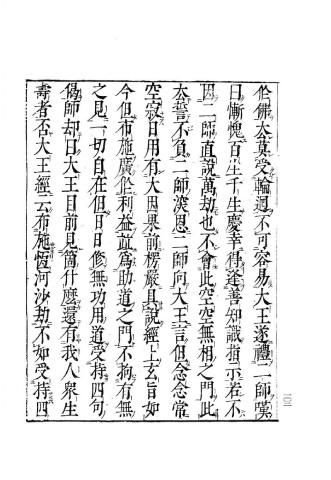 佗佛大莫受輪迴不可容易大王遂禮二師嘆
曰慚愧百生千生慶幸得逢善知識指示若不
因二師直說萬劫也不會此空空無相之門此
去誓不負二師深恩二師向大王言但念念常
空寂日用有大因果前楞嚴具說經上玄旨如
今但布施廣作利益並為助道之門不拘有無
之見一切自在但日日修無功用道受持四句
偈師却曰大王目前見箇什麼還有我人衆生
壽者否大王經云布施恆河沙劫不如受持四